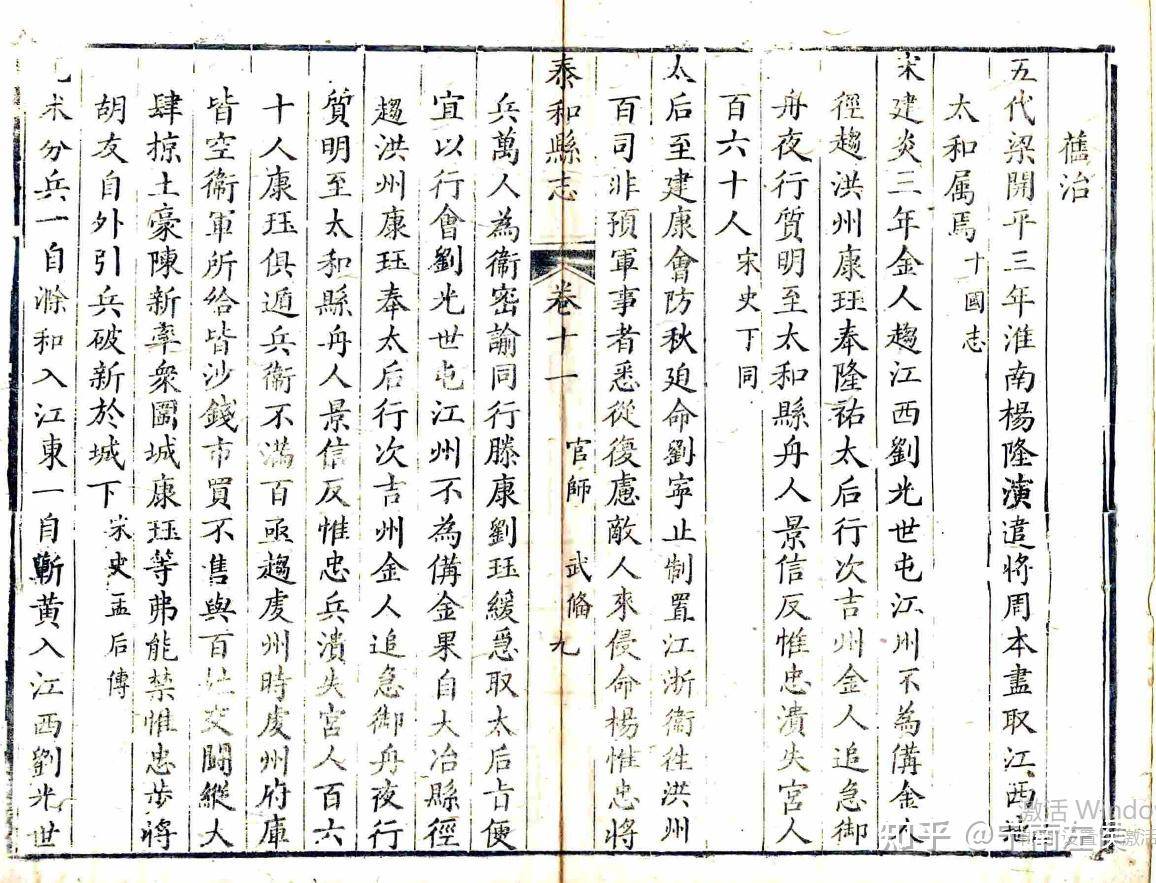 舊治
五代梁開平三年淮南楊隆演遣將周本盡取江西地
太和属焉十國志
宋建炎三年金人趨江西劉光世屯江州不為備金人
徑趨洪州康珏奉隆祐太后行次吉州金人追急御
舟夜行質明至太和縣舟人景信反惟忠潰失宮人
百六十人宋史下同
太后至建康會防秋廹命劉寧止制置江浙衞徃洪州
百司非預軍事者悉從復慮敵人來侵命楊惟忠將
泰和縣志 卷十一 官師 武備 九
兵萬人為衞密諭同行滕康劉珏緩急取太后旨便
宜以行會劉光世屯江州不為備金果自大冶縣徑
趨洪州康珏奉太后行次吉州金人追急御舟夜行
質明至太和縣舟人景信反惟忠兵潰失宮人百六
十人康珏俱遁兵衞不滿百亟趨虔州時虔州府庫
皆空衞軍所給皆沙錢市買不售與百姓交鬪縱大
肆掠土豪陳新率衆圍城康珏等弗能禁惟忠步將
胡友自外引兵破新於城下宋史孟后傳
未分兵一自滁和入江東一自蘄黃入江西劉光世
激活 Windows
知乎